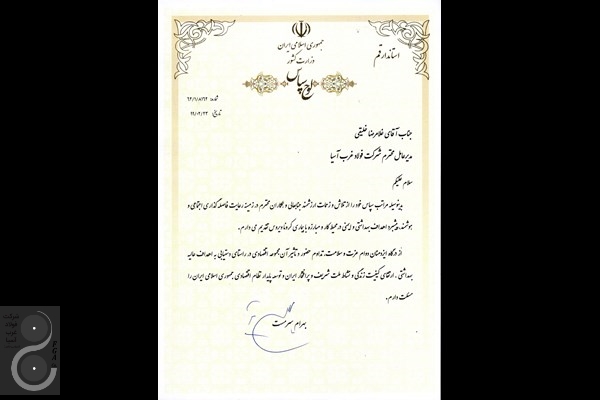 جمهوری اسلامی ایران
وزارت کشور
استاندار قم
لوح سپاس
شماره:
تاریخ:
جناب آقای غلامرضا خلیقی
مدیرعامل محترم شرکت فولاد غرب آسیا
سلام علیکم
بدینوسیله مراتب سپاس خود را از تلاش و زحمات ارزشمند جنابعالی و همکاران محترم در زمینه رعایت فاصله گذاری اجتماعی و
هوشمند، پیشبرد اهداف بهداشتی و ایمنی در محیط کار و مبارزه با بیماری کرونا ویروس تقدیم می دارم.
از درگاه ایزد منان دوام عزت و سلامت، تداوم حضور و تأثیر آن مجموعه اقتصادی در راستای دستیابی به اهداف عالیه
بهداشتی، ارتقای کیفیت زندگی و نشاط ملت شریف و پرافتخار ایران و توسعه پایدار نظام اقتصادی جمهوری اسلامی ایران را
مسئلت دارم.
بهرام سرمست
شرکت
فولاد
غرب
آسیا